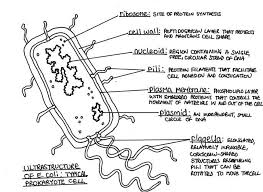 ribosome: SITE OF PROTEIN SYNTHESIS
cell wall: PEPTIDOGLYCAN LAYER THAT PROTECTS
AND MAINTAINS CELL SHAPE
nucleoid: REGION CONTAINING A SINGLE,
FREE, CIRCULAR STRAND OF DNA
pili: PROTEIN FILAMENTS THAT FACILITATE
CELL ADHESION AND CONJUGATION
PLASMA MEMBRANE: PHOSPHOLIPID LAYER
WITH EMBEDDED PROTEINS THAT CONTROLS THE
MOVEMENT OF MATERIALS IN AND OUT OF THE CELL
plasmid: AN INDEPENDENT, SMALL
CIRCLE OF DNA
flagella: ELONGATED,
RELATIVELY IMMOVABLE,
CORKSCREW-SHAPED
STRUCTURES RESEMBLING
PILI THAT CAN BE
ROTATED TO MOVE THE CELL
ULTRASTRUCTURE
OF E. coli: TYPICAL
PROKARYOTE CELL